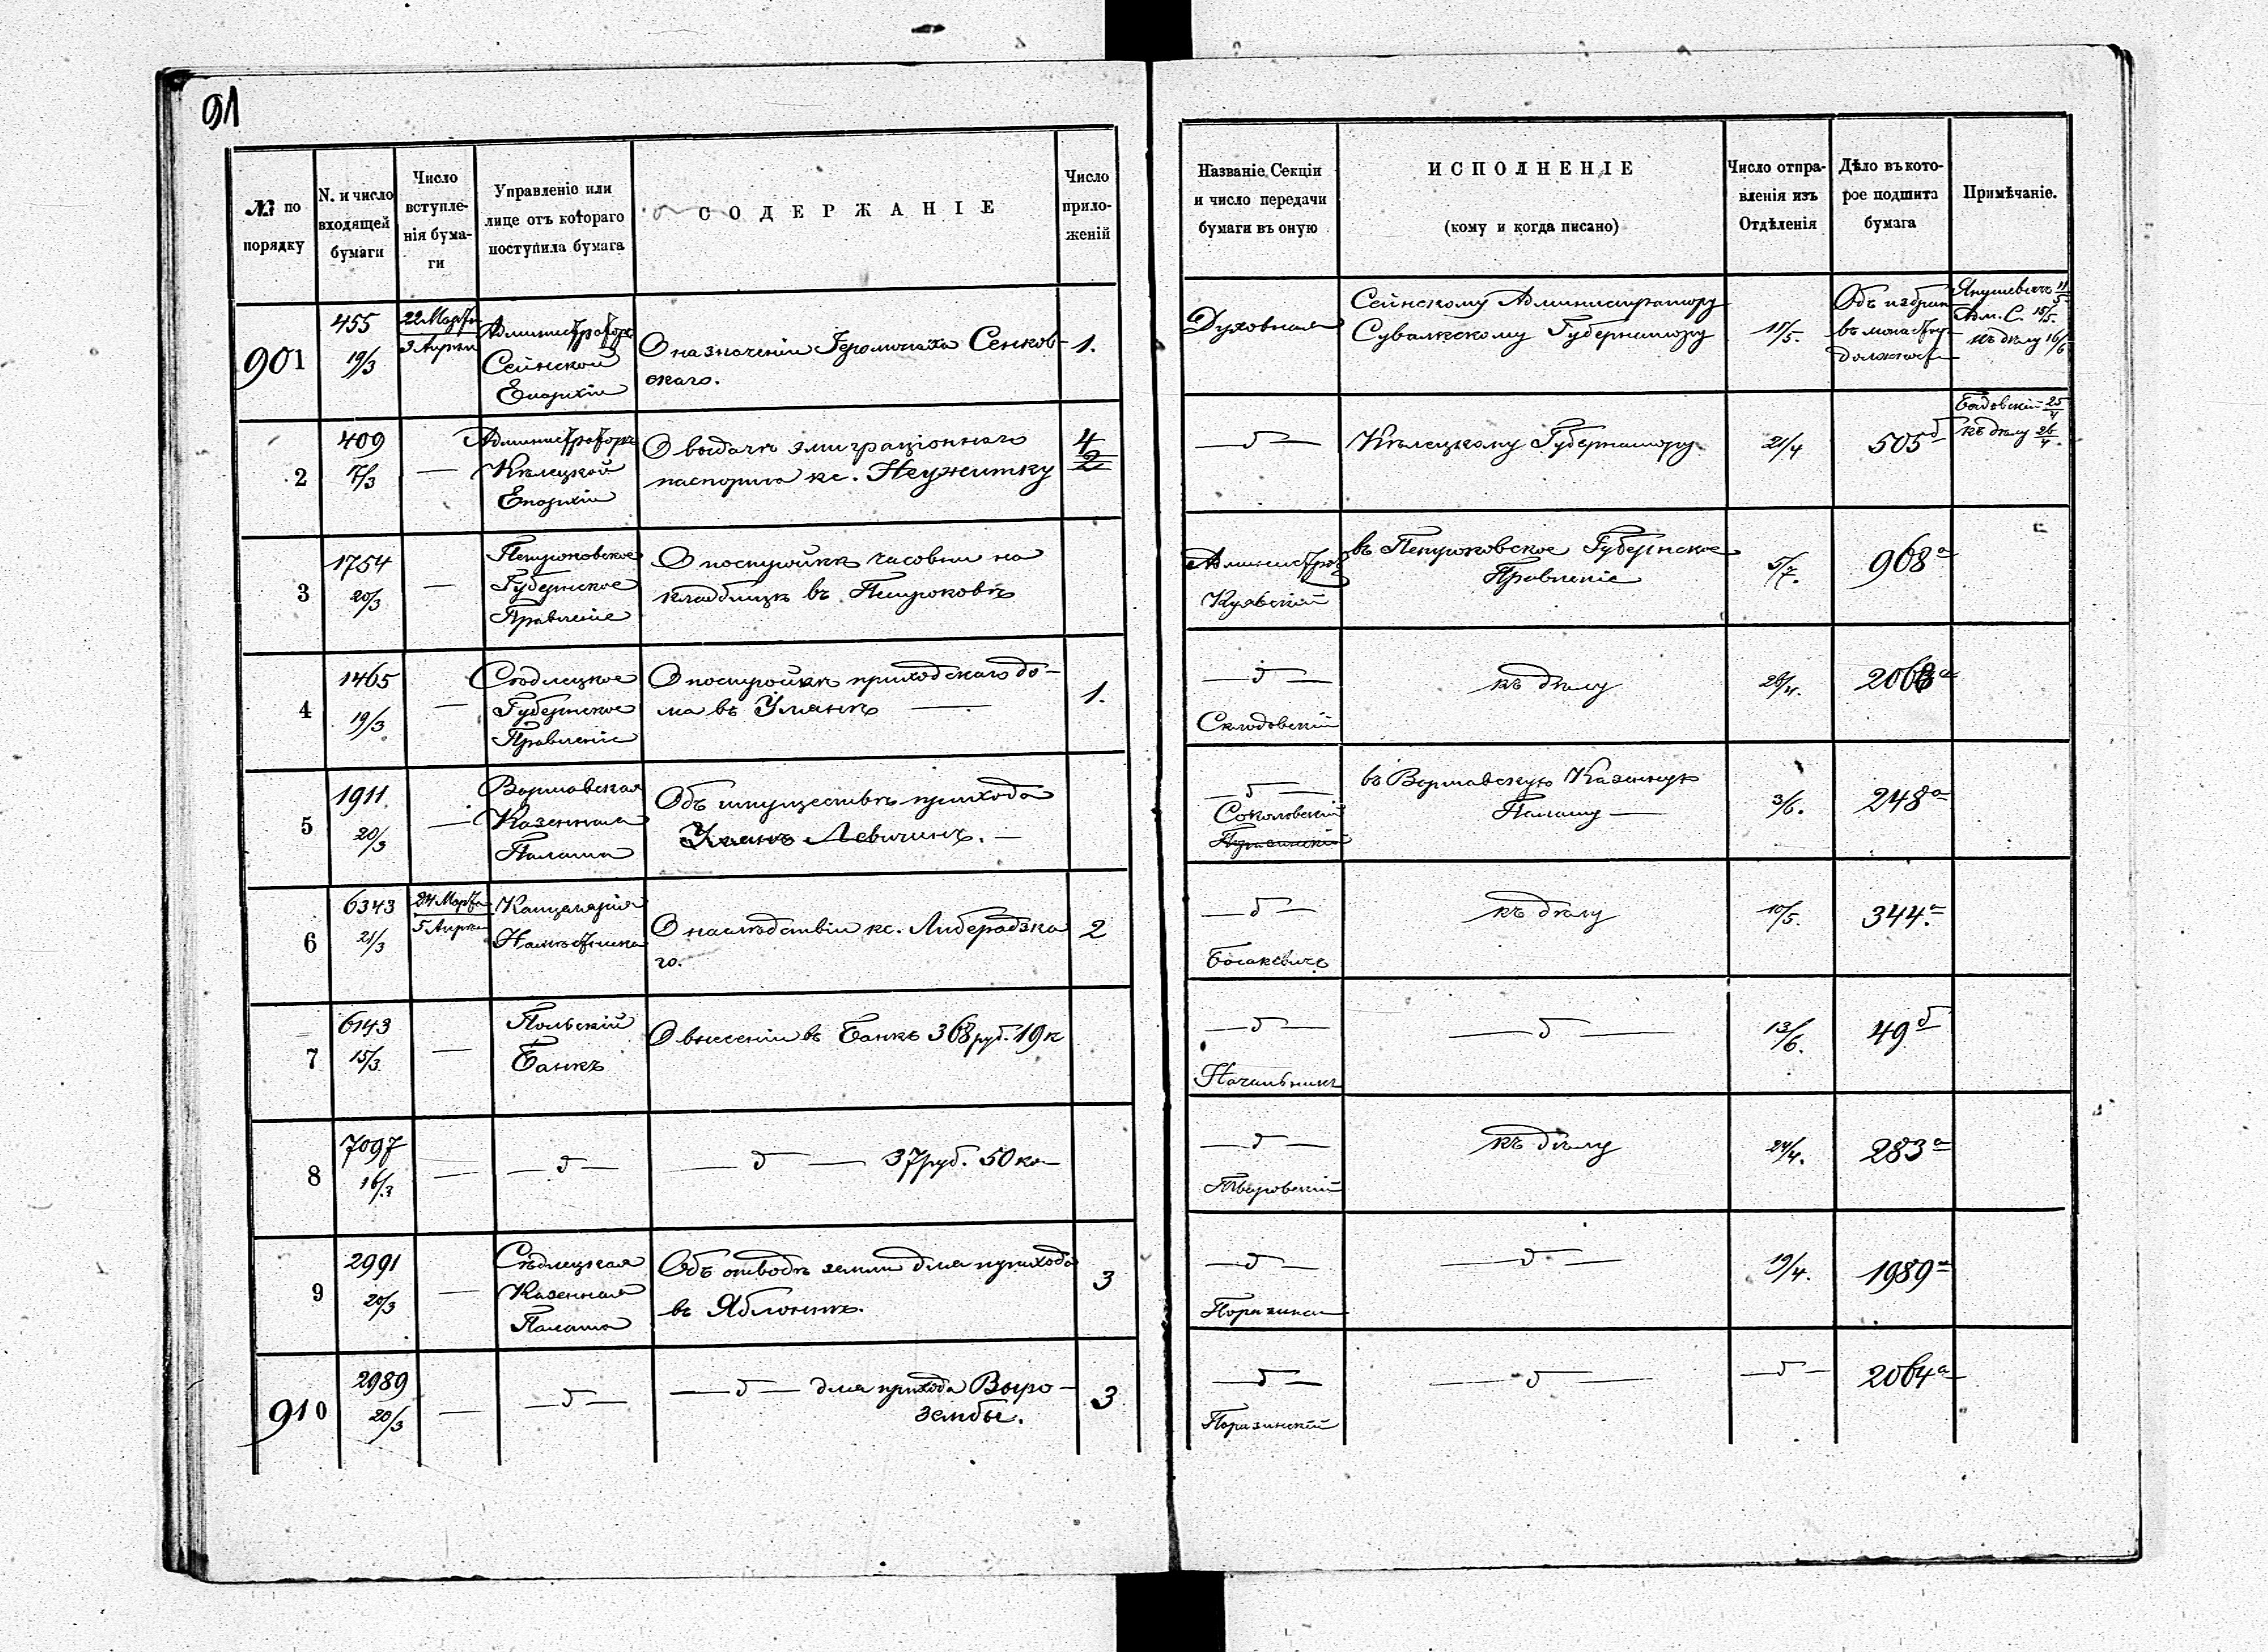 91
№ по порядку
N. и число входящей бумаги
Число вступле-нія бума-ги
Управленіе или лице отъ котораго поступила бумага
СОДЕРЖАНІЕ
Число прило-женій
Названіе Секціи и число передачи бумаги въ оную
ИСПОЛНЕНІЕ
(кому и когда писано)
Число отпра-вленія изъ Отдѣленія
Дѣло въ кото-рое подшита бумага
Примѣчаніе.
901
455
19/3
22 Марта
3 Апрѣля
Администраторъ
Сейнской
Епархіи
О назначеніи Іеромонаха Сенков-
скаго.
1.
Духовная
Сейнскому Администратору
Сувалкскому Губернатору
11/5.
Объ избран
въ монастыр
должност
Янушевичъ 11/5
Адм. С. 15/5.
къ дѣлу 16/6
2
409
7/3
—
Администраторъ
Кѣлецкой
Епархіи
О выдачѣ эмиграціоннаго
паспорта кс. Неужитку
4
2
— д —
Кѣлецкому Губернатору
21/4
505 д
25/4
къ дѣлу 26/4.
3
1754
20/3
—
Петроковское
Губернское
Правленіе
О постройкѣ часовни на
кладбищѣ въ Петроковѣ
Администр
Куявскій
въ Петроковское Губернское
Правленіе
5/7.
968 а
4
1465
19/3
—
Сѣдлецкое
Губернское
Правленіе
О постройкѣ приходскаго до-
ма въ —
1.
— д —
Склодовскій
къ дѣлу
26/4.
5
1911.
20/3
—
Варшавская
Казенная
Палата
Объ имуществѣ прихода
Левичинъ. —
— д —
Соколовскій
въ Варшавскую Казенную
Палату —
3/6.
248 а
6
6343
21/3
24 Марта
5 Апрѣля
Канцелярія
Намѣстника
О наслѣдствіи кс. Либерадзка
го.
2
— д —
къ дѣлу
10/5.
344. а
7
6143
15/3
—
Польскій
Банкъ
О внесеніи въ Банкъ 368 руб. 19 к
— д —
Начальникъ
— д —
13/6.
49 д
8
7097
16/3
—
— д —
— д — 37 руб. 50 ко
— д —
къ дѣлу
24/4.
283 а
9
2991
20/3
—
Сѣдлецкая
Казенная
Палата
Объ отводѣ земли для прихода
въ Яблоннѣ.
3
— д —
— д —
19/4.
1989 а
910
2989
20/3
—
— д —
— д — для прихода Выро-
зембы.
3
— д —
Поразинскій
— д —
— д —
2064 а